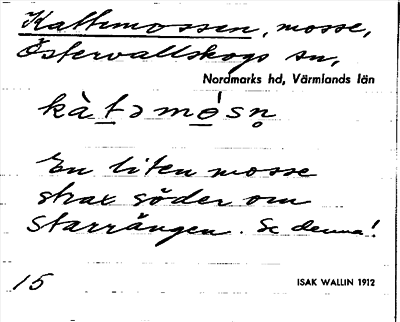 Kattemossen, mosse,
Östervallskogs sn,
Nordmarks hd, Värmlands län
kàtəmósn̥
En liten mosse
strax söder om
Starrängen. Se denna!
15
ISAK WALLIN 1912